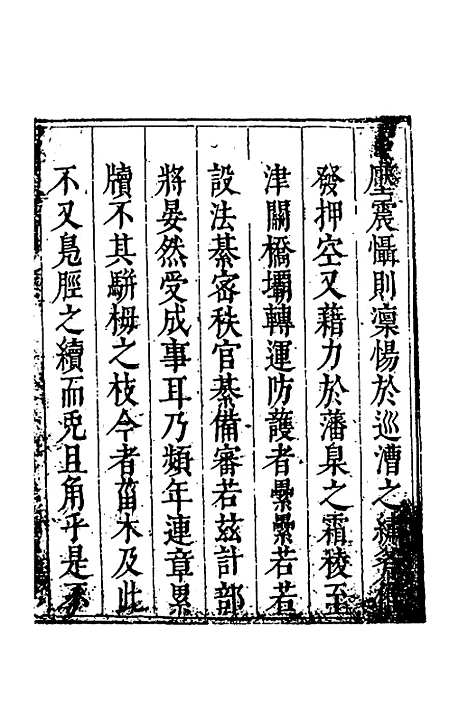 塵震慴則凜惕於巡漕之繡斧
發押空又藉力於藩臬之霜稜至
津關橋壩轉運防護者纍纍若若
設法綦密秩官綦備審若茲計部
將晏然受成事耳乃頻年連章累
牘不其駢栂之枝今者菑木及此
不又鳧脛之續而兎且角乎是不